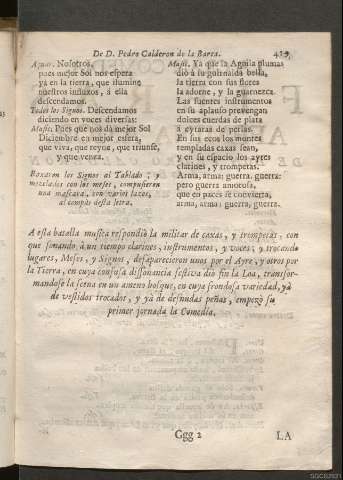 De D. Pedro Calderon de la Barca.
Aquar. Nosotros,
pues mejor Sol nos espera
yá en la tierra, que ilumine
nuestros influxos, á ella
descendamos.
Todos los Signos. Descendamos
diciendo en voces diversas:
Music. Pues que nos dá mejor Sol
Diciembre en mejor esfera,
que viva, que reyne, que triunfe,
y que venza.
Baxaron los Signos al Tablado; y
mezclados con los meses, compusieron
una mascara, con varios lazos,
al compás desta letra.
Music. Ya que la Aguila plumas
dió á su guirnalda bella,
la tierra con sus flores
la adorne, y la guarnezca.
Las fuentes instrumentos
en su aplauso prevengan
dulces cuerdas de plata
á cytaras de perlas.
En sus ecos los montes
templadas caxas sean,
y en su espacio los ayres
clarines, y trompetas.
Arma, arma; guerra, guerra:
pero guerra amorosa,
que en paces se convierta,
arma, arma; guerra, guerra.
A esta batalla musica respondió la militar de caxas, y trompetas, con
que sonando á un tiempo clarines, instrumentos, y voces; y trocando
lugares, Meses, y Signos, desaparecieron unos por el Ayre, y otros por
la Tierra, en cuya confusa dissonancia festiva dió fin la Loa, transfor-
mandose la scena en un ameno bosque, en cuya frondosa variedad, yá
de vestidos trocados, y yá de desnudas peñas, empezó su
primer jornada la Comedia.
Ggg 2
LA